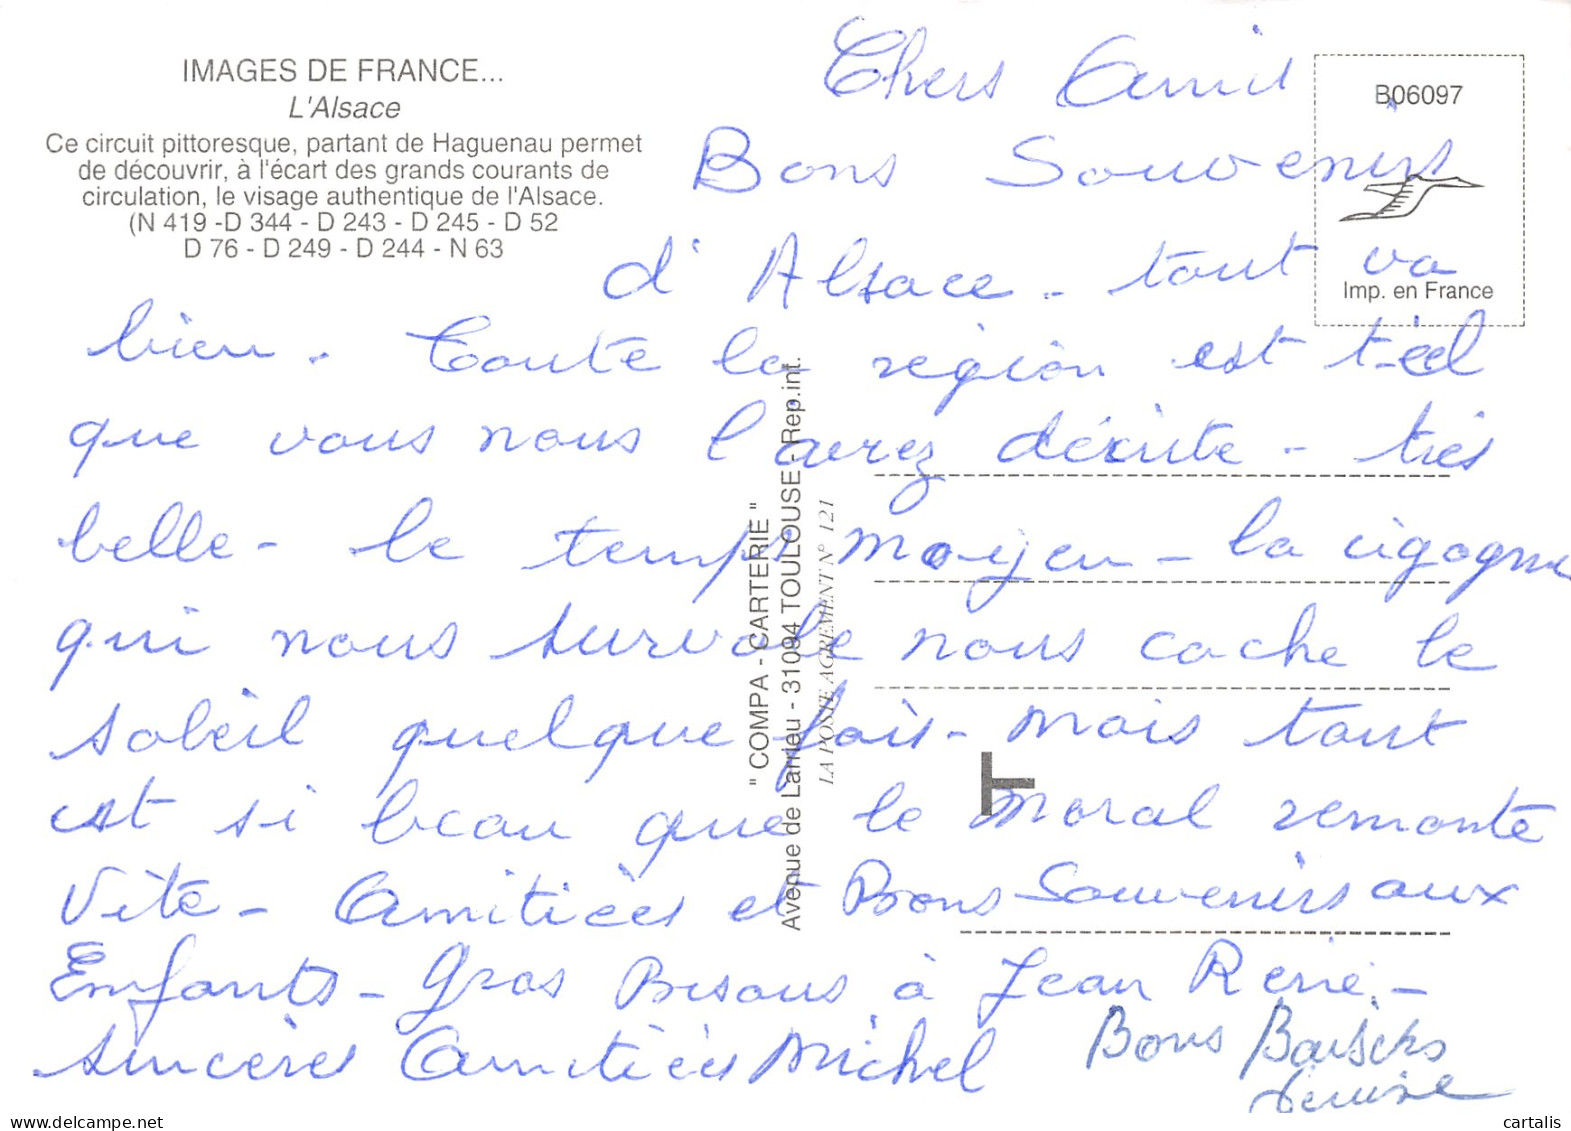 IMAGES DE FRANCE...
L'Alsace
Ce circuit pittoresque, partant de Haguenau permet
de découvrir, à l'écart des grands courants de
circulation, le visage authentique de l'Alsace.
(N 419 -D 344 - D 243 - D 245 - D 52
D 76 - D 249 - D 244 - N 63
B06097
Imp. en France
Chers Amis
Bons Souvenirs
d'Alsace - tout va
bien - Toute la région est t-el
que vous nous l'avez décrite - très
belle - le temps moyen - la cigogne
qui nous survole nous cache le
soleil quelque fois - mais tout
est si beau que le moral remonte
Vite - Amitiées et Bons Souvenirs aux
Enfants - Gros Bisous à Jean René -
sincères Amitiées Michel
Bons Baisers
Denise
" COMPA - CARTERIE "
Avenue de Larrieu - 31094 TOULOUSE - Rep.int.
LA POSTE AGREMENT N° 121
cartalis.com